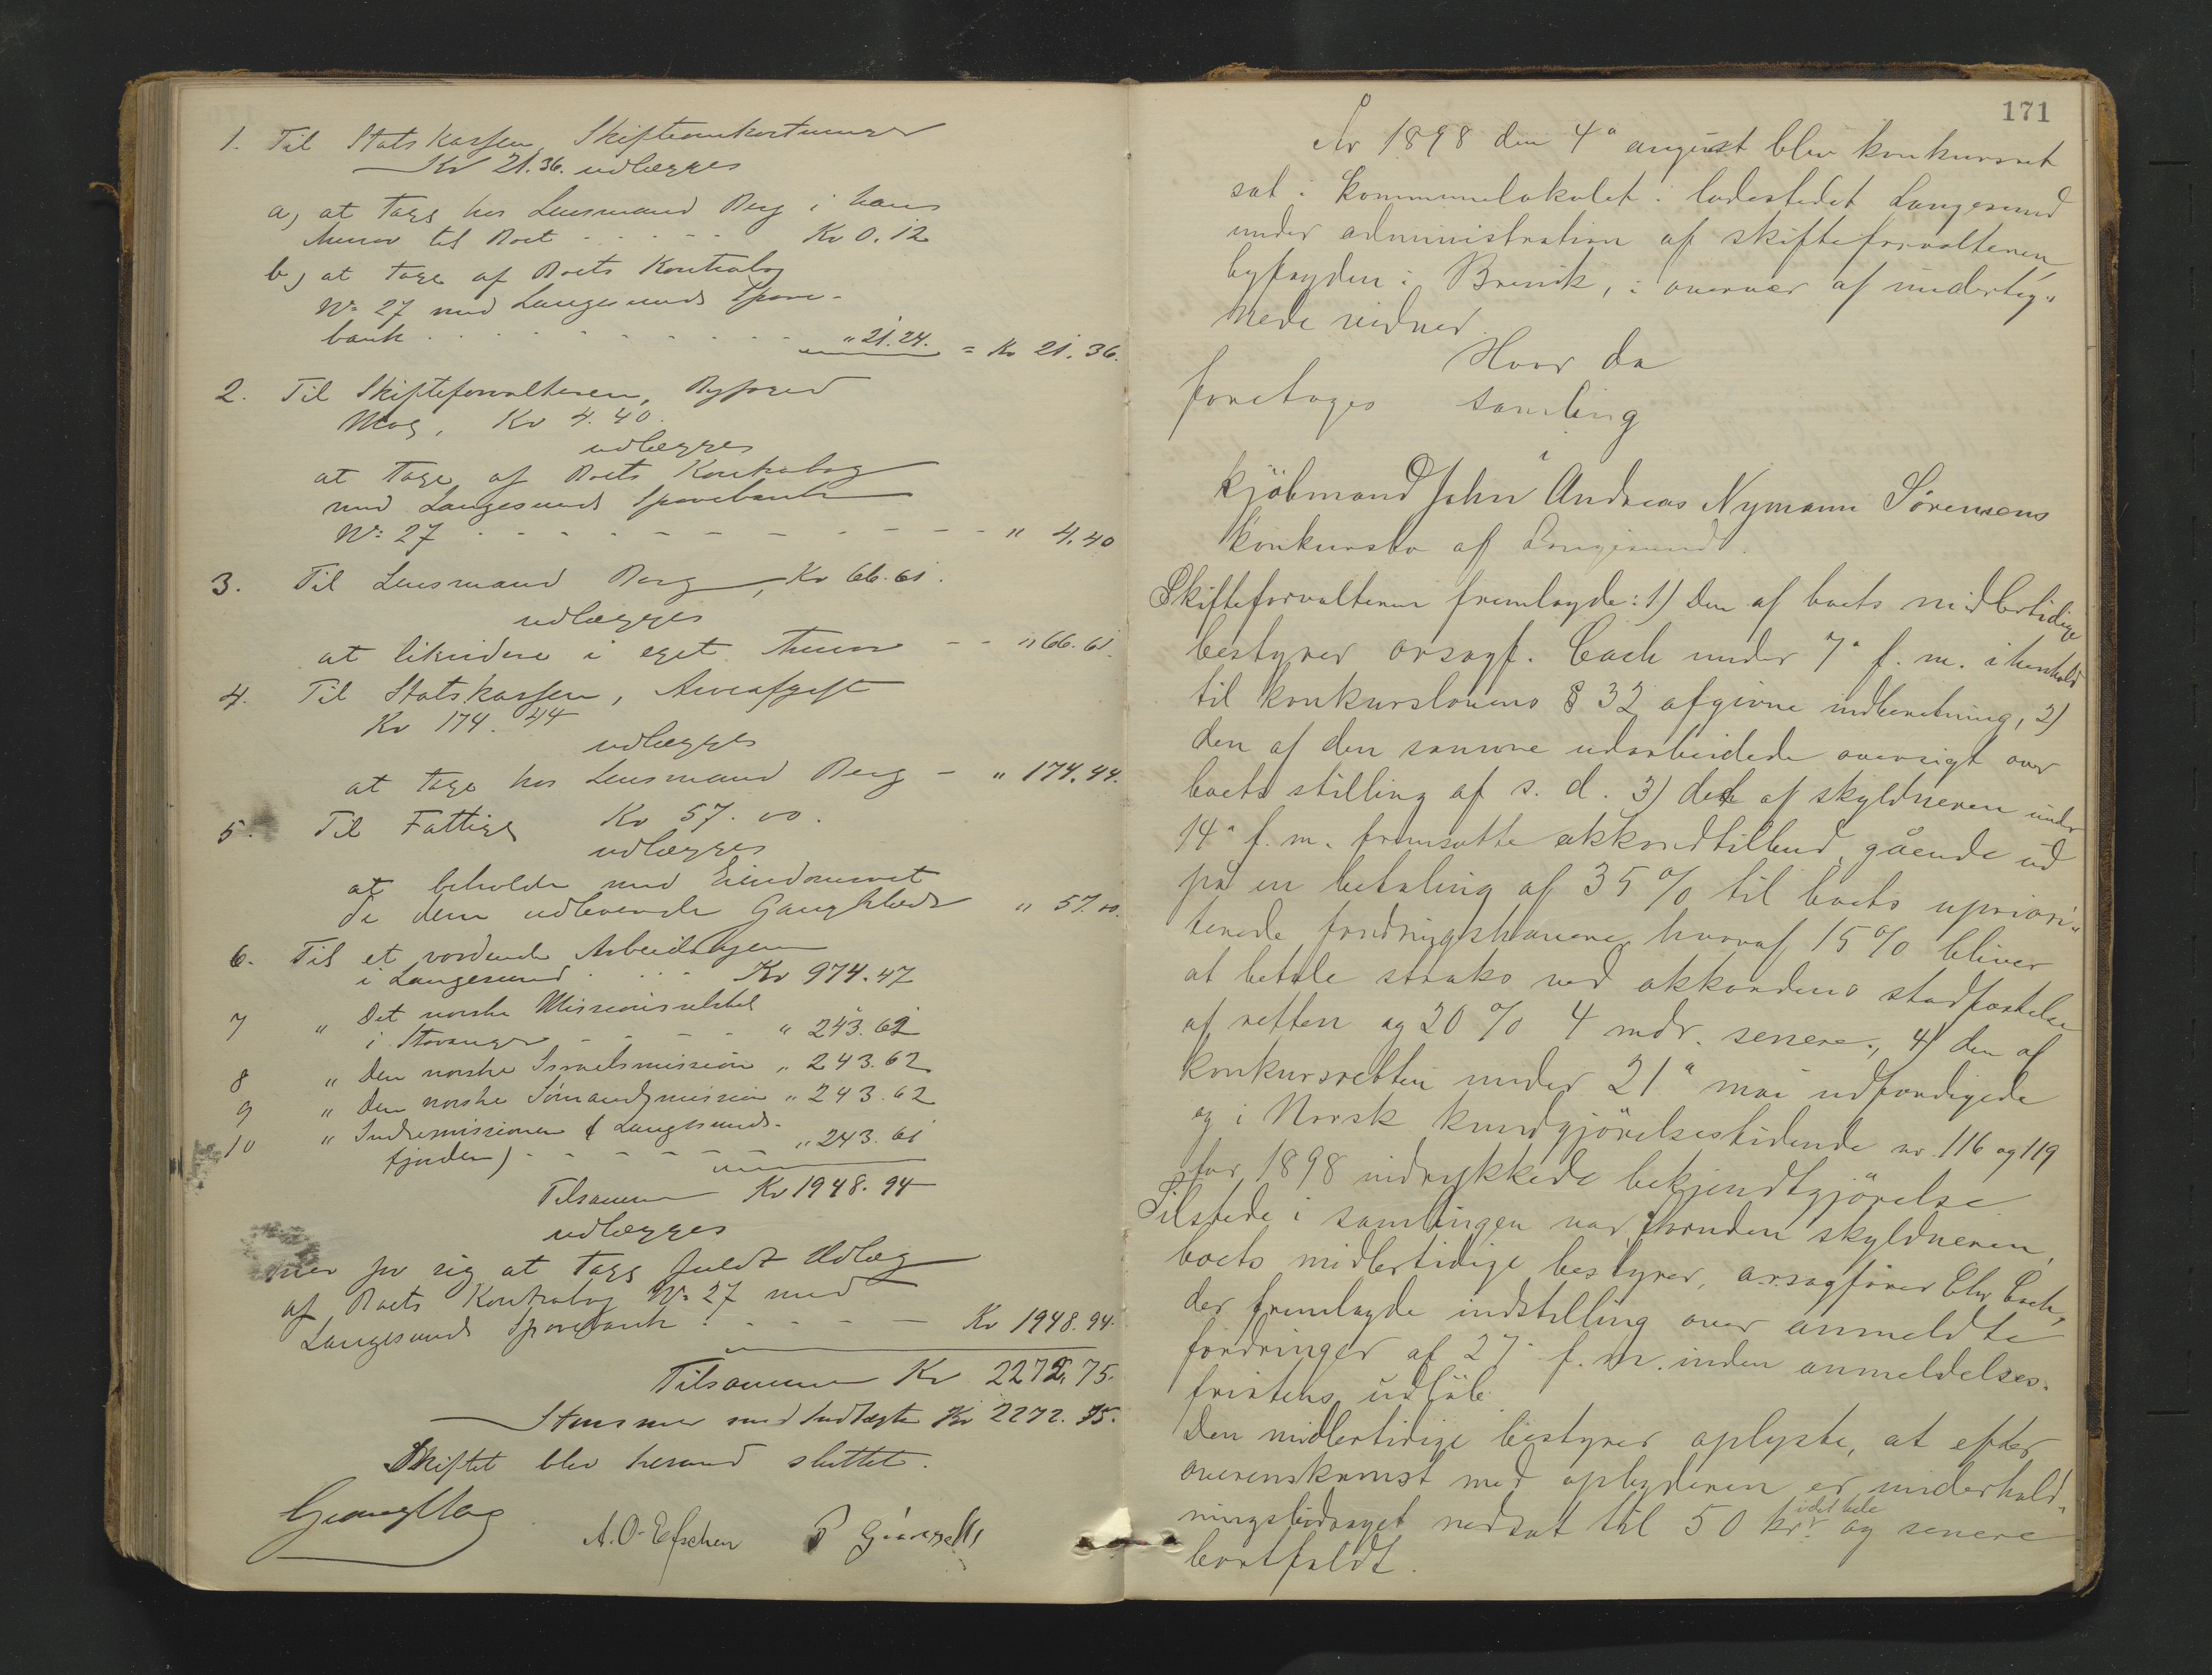 1. Til Statskassen, Skifteomkostninger
Kr 21.36. udlægges
a, at tage hos Lensmand Berg i hans
Thuur til Boet - - - - - Kr 0.12
b, at tage af Boets Kontrabog
No 27 med Langesunds Spare-
bank - - - - - - - - - " 21.24. = Kr 21.36.
2. Til Skifteforvalteren, Byfoged
Mag, Kr 4.40.
udlægges
at tage af Boets Kontrabog
med Langesunds Sparebank
No 27 - - - - - - - - - - " 4.40
3. Til Lensmand Berg, Kr 66.61.
udlægges
at likvidere i eget - - " 66.61.
4. Til Statskassen, Arveafgift
Kr 174.44
udlægges
at tage hos Lensmand Berg - " 174.44.
5. Til Fattige Kr 57.00.
udlægges
at beholde med Eiendomsret
de dem udleverede Gangklæder " 57.00.
6. Til et vordende Arbeidshjem
i Langesund - - - Kr 974.47
7 " Det norske Missionsselskab
i Stavanger - - - - " 243.62
8 " Den norske Israelsmission " 243.62
9 " Den norske Sømandsmission " 243.62
10 " Indremissionen (Langesunds-
fjorden) - - - - - " 243.61
Tilsammen Kr 1948.94
udlægges
hver for sig at tage fuldt Udlæg
af Boets Kontrabog No 27 med
Langesunds Sparebank - - - - - Kr 1948.94.
Tilsammen Kr 2272,75.
Stemmer med Indtægten Kr 2272.75.
Skiftet blev herved sluttet.
Georg Mag A. O. Efschen P
171
År 1898 den 4de august blev konkursret
sat i kommunelokalet i ladestedet Langesund
under administration af skifteforvalteren
byfogden i Brevik, i overvær af underteg"
nede vidner.
Hvor da
foretages samling
i
kjöbmand John Andreas Nymann Sörensens
konkursbo af Langesund.
Skifteforvalteren fremlagde: 1) Den af boets midlertidige
bestyrer orsagf. Cock under 7de f. m. i henhold
til konkurslovens § 32 afgivne indberetning, 2)
den af den samme udarbeidede oversigt over
boets stilling af s. d. 3) det af skyldneren under
14de f. m. fremsatte akkordtilbud, gående ud
på en betaling af 35 % til boets upriori"
terede fordringshavere, hvoraf 15 % bliver
at betale straks ved akkordens stadfæstelse
af retten og 20 % 4 mdr. senere, 4) den af
konkursretten under 21de mai udfærdigede
og i Norsk kundgjörelsestidende nr. 116 og 119
for 1898 indrykkede bekjendtgjörelse.
Tilstede i samlingen var foruden skyldneren,
boets midlertidige bestyrer, orsagförer Chr. Cock,
der fremlagde indstilling over anmeldte
fordringer af 27de f. m. inden anmeldelses-
fristens udlöb.
Den midlertidige bestyrer oplyste, at efter
overenskomst med opbyderen er underhold"
ningsbidraget nedsat til 50 kr. idet hele og senere
bortfaldt.